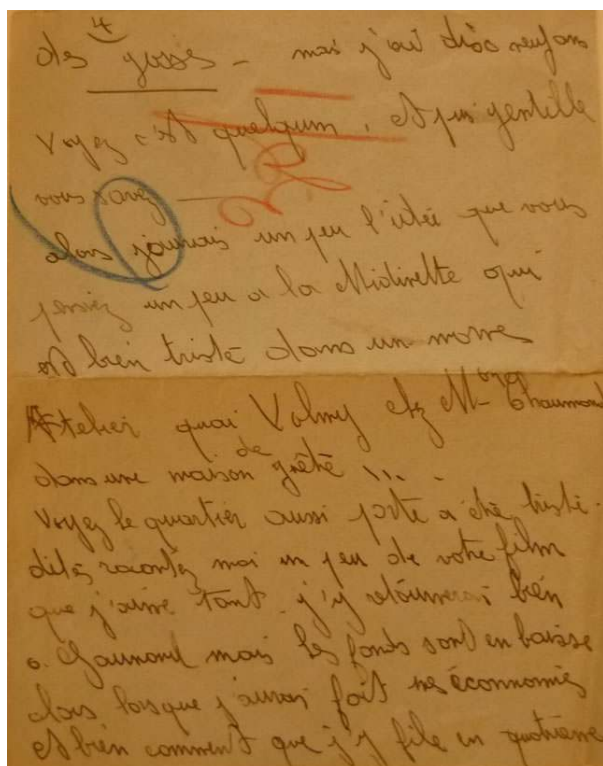 4
des gosses - mais j'ai dix neuf ans
voyez c'est quelqu'un, et puis gentille
vous savez
alors j'aurais un peu l'idée que vous
pensiez un peu a la Midinette qui
est bien triste dans un morne
Atelier quai Valmy chez M Chaumond
dans une maison de grêté ....
voyez le quartier aussi porte a être triste.
dites racontez moi un peu de votre film
que j'aime tant j'y retournerai bien
a Gaumond mais les fonds sont en baisse
alors lorsque j'aurai fait mes économies
et bien comment que j'y file en quatrième